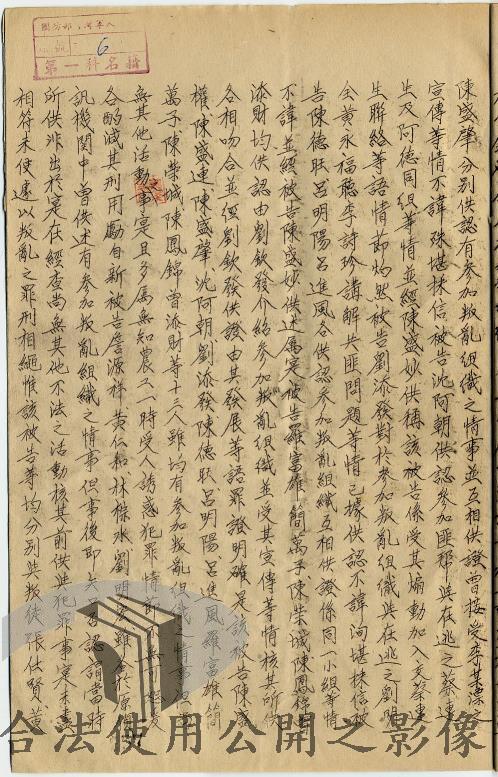 陳盛肇分別供認有參加叛亂組織之情事並互相供證曾接受李某漂之
宣傳等情不諱殊堪採信被告沈阿朝供認參加匪幫與在逃之蔡連
生及阿德同組等情並經陳盛妙供稱該被告係受其煽動加入交蔡連
生聯絡等語情節灼然被告劉添發對於參加叛亂組織與在逃之劉明
全黃永福聽李詩珍講解共匪問題等情已據供認不諱洵堪採信被
告陳德朕呂明陽呂進風各供認參加叛亂組織互相供證係同一小組等情
不諱並經被告陳盛妙供述屬實被告羅富雄簡萬子陳榮城陳鳳錦曾
添財均供認由劉欽發介紹參加叛亂組織並受其宣傳等情核其所供
各相吻合並經劉欽發供證由其發展等語罪證明確是該被告陳
權陳盛連陳盛肇沈阿朝劉添發陳德朕呂明陽呂進風羅富雄簡
萬子陳榮城陳鳳錦曾添財等十三人雖均有參加叛亂組織之情事
無其他活動之事實且多屬無知農又一時受人誘惑犯罪情
各酌減其刑用勵自新被告詹源祥黃仁和林樑水劉明
訊機關中曾供述有參加叛亂組織之情事但事後即矢口否認謂當時
所供非出於實在經查尚無其他不法之活動核其前供與犯罪事實未盡
相符未便遽以叛亂之罪刑相繩惟該被告等均分別與叛徒張仕賢黃
第一科名稿
6
合法使用公開之影像